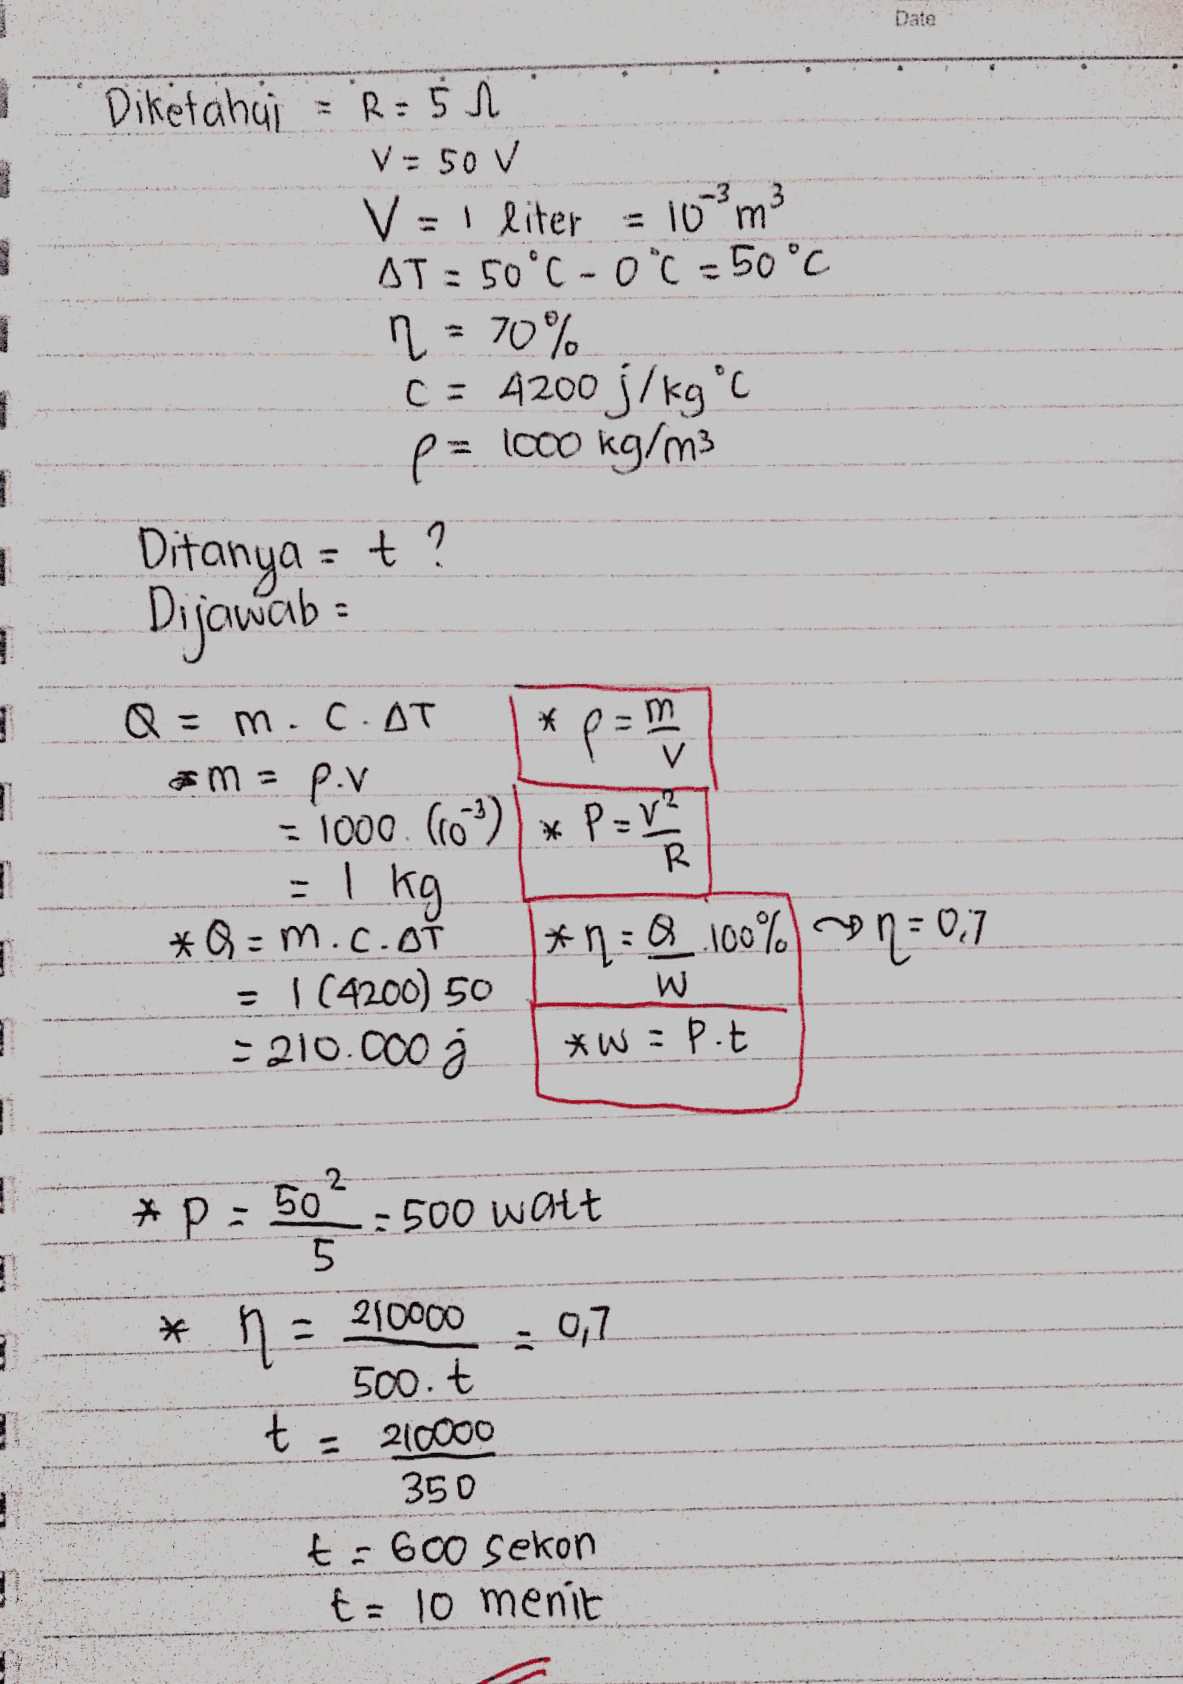 Date
Diketahui = R = 5 Ω
V = 50 V
V = 1 liter = 10⁻³ m³
ΔT = 50°C - 0°C = 50°C
η = 70%
C = 4200 j/kg°C
ρ = 1000 kg/m³
Ditanya = t ?
Dijawab =
Q = m . C . ΔT
m = ρ.v
= 1000. (10⁻³)
= 1 kg
* Q = m . C . ΔT
= 1 (4200) 50
= 210.000 j
* ρ = m/V
* P = V²/R
* η = Q/W .100% ⤳ η = 0,7
* W = P.t
* P = 50²/5 = 500 watt
* η = 210000/500.t = 0,7
t = 210000/350
t = 600 sekon
t = 10 menit